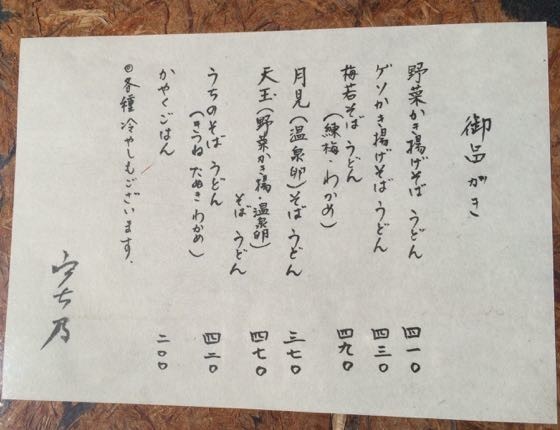 御品がき
野菜かき揚げそば うどん 四一〇
ゲソかき揚げそば うどん 四三〇
梅若そば うどん 四九〇
(練梅・わかめ)
月見(温泉卵)そば うどん 三七〇
天玉(野菜かき揚・温泉卵)
そば うどん 四七〇
うちのそば うどん 四二〇
(きつね たぬき わかめ)
かやくごはん 二〇〇
◎各種冷やしもございます.
宇ち乃